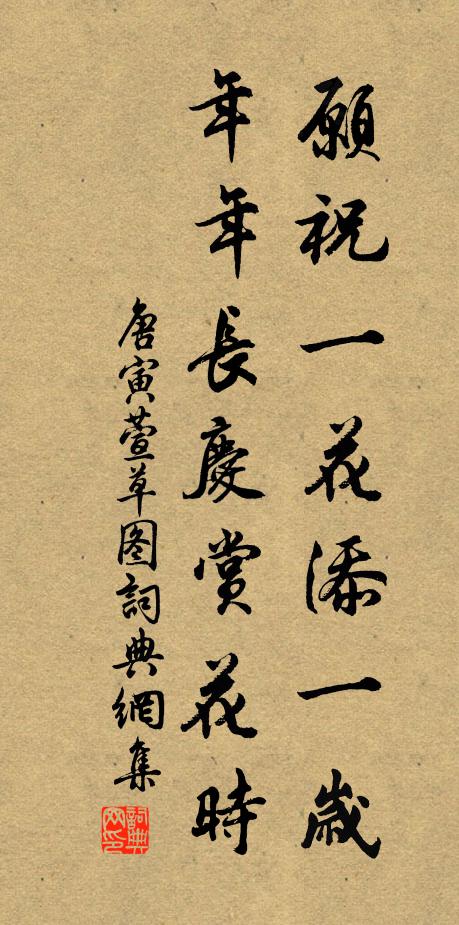 願祝一花添一歲
年年長慶賞花時
唐寅萱草图詞典網集
詞典網印